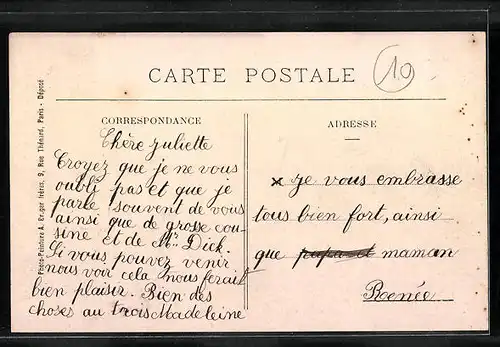 CARTE POSTALE
19
CORRESPONDANCE
Chère Juliette
Croyez que je ne vous
oubli pas et que je
parle souvent de vous
ainsi que de grosse cou-
sine et de Mr. Dick.
Si vous pouvez venir
nous voir cela nous ferait
bien plaisir. Bien des
choses au trois Madeleine
ADRESSE
x je vous embrasse
tous bien fort, ainsi
que papa et maman
Renée
Photo-Peinture A. frères, 9, Rue Thénard, Paris - Déposé